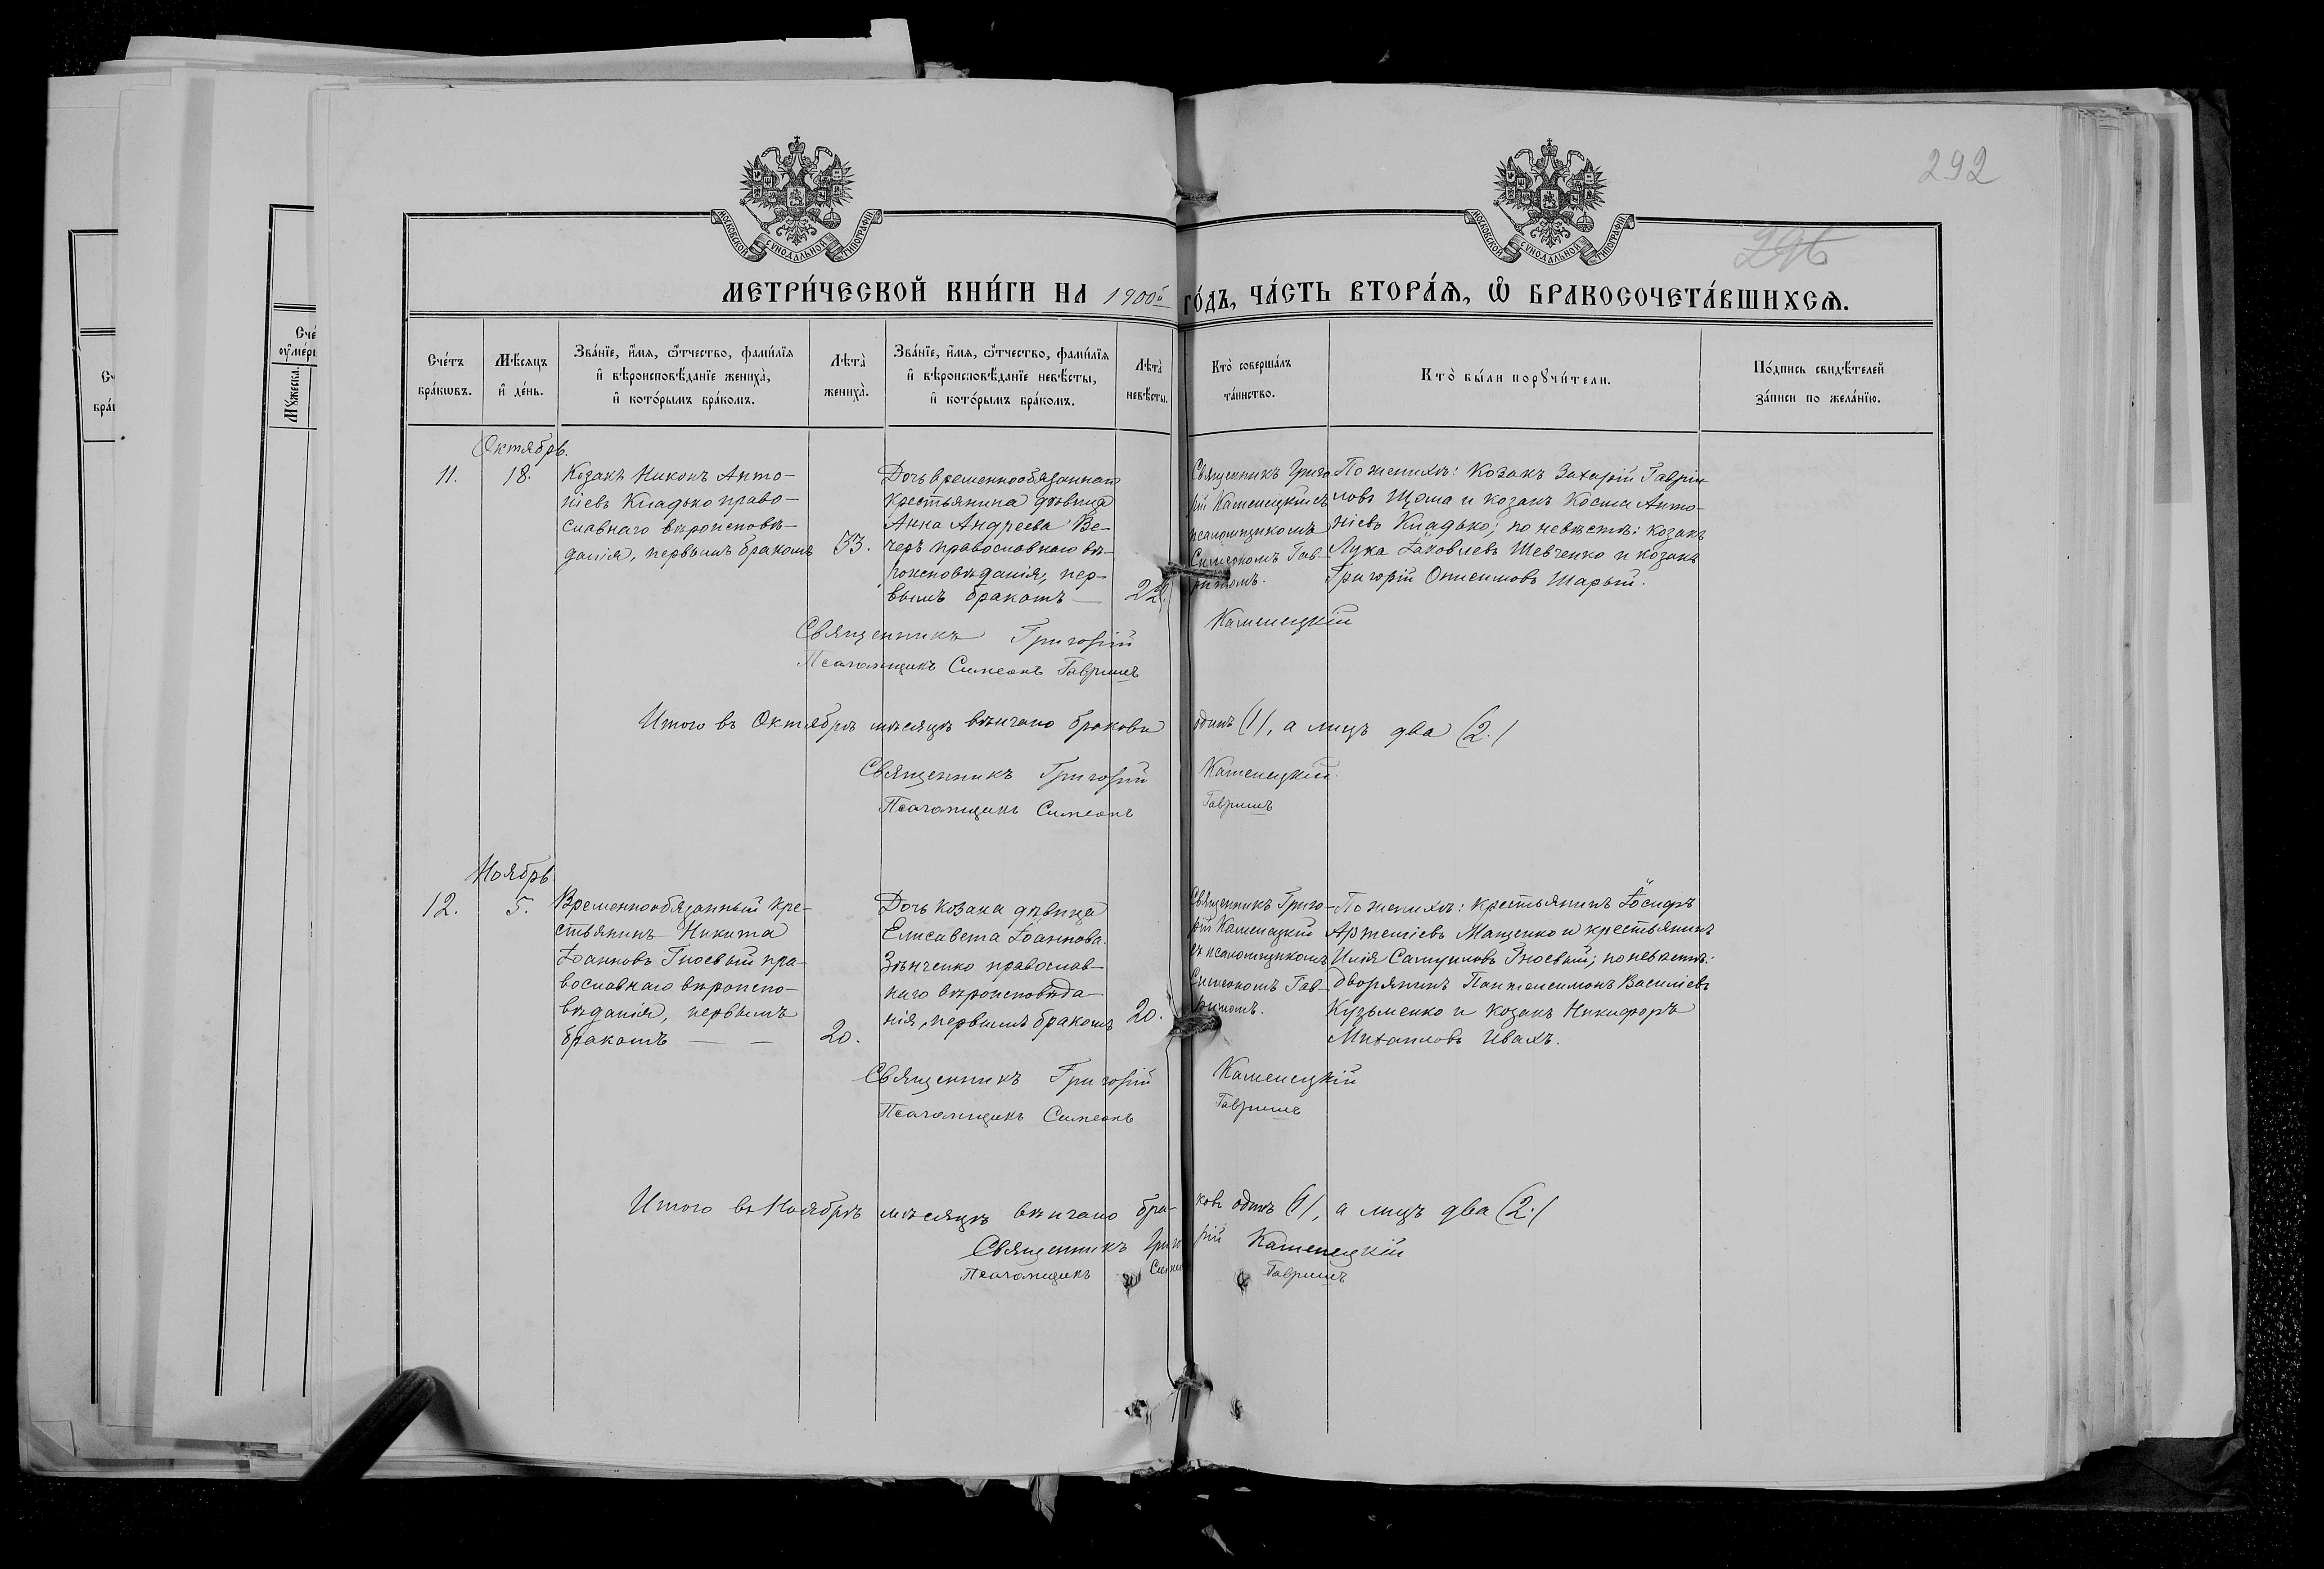 292
296
МОСКОВСКОЙ СУНОДАЛЬНОЙ ТИПОГРАФІИ
МОСКОВСКОЙ СУНОДАЛЬНОЙ ТИПОГРАФІИ
МЕТРИ́ЧЕСКОЙ КНИ́ГИ НА 1900й ГО́ДЪ, ЧА́СТЬ ВТОРА́Я, Ѽ БРАКОСОЧЕТА́ВШИХСЯ.
Сче́тъ бра́кѡвъ.
Мѣ́сяцъ и҆ де́нь.
Зва́нїе, и҆́мя, ѻ҆́тчество, фами́лїя и҆ вѣроисповѣ́данїе жениха̀, и҆ кото́рымъ бра́комъ.
Лѣта̀ жениха̀.
Зва́нїе, и҆́мя, ѻ҆́тчество, фами́лїя и҆ вѣроисповѣ́данїе невѣ́сты, и҆ кото́рымъ бра́комъ.
Лѣта̀ невѣ́сты.
Кто̀ соверша́лъ та́инство.
Кто̀ бы́ли порꙋчи́тели.
По́дпись свидѣ́телей за́писи по жела́нїю.
Октябрь.
11.
18.
Козакъ Никонъ Анто-
ніевъ Кладько право-
славнаго вѣроисповѣ-
данія, первымъ бракомъ
33.
Дочь временнообязаннаго
крестьянина дѣвица
Анна Андреева Ве-
черъ православнаго вѣ-
роисповѣданія, пер-
вымъ бракомъ —
22.
Священникъ Григо-
рій Каменецкій съ
псаломщикомъ
Симеономъ Гав-
ришомъ.
По женихѣ: козакъ Захарій Гаврiи-
ловъ Щома и козакъ Косма Анто-
ніевъ Кладько; по невѣстѣ: козакъ
Лука Іаковлевъ Шевченко и козакъ
Григорій Онисимовъ Шарый.
Священникъ Григорій Каменецкій
Псаломщикъ Симеонъ Гавришъ
Итого въ Октябрѣ мѣсяцѣ вѣнчано браковъ одинъ (1), а лицъ два (2.)
Священникъ Григорій Каменецкій.
Псаломщикъ Симеонъ Гавришъ
Ноябрь.
12.
5.
Временнообязанный кре-
стьянинъ Никита
Іоанновъ Гноевый пра-
вославнаго вѣроиспо-
вѣданія, первымъ
бракомъ — —
20.
Дочь козака дѣвица
Елисавета Іоаннова
Зѣнченко православ-
наго вѣроисповѣда-
нія, первымъ бракомъ
20.
Священникъ Григо-
рій Каменецкій
съ псаломщикомъ
Симеономъ Гав-
ришомъ.
По женихѣ: крестьянинъ Іосифъ
Артеміевъ Мащенко и крестьянинъ
Илія Самуиловъ Гноевый; по невѣстѣ:
дворянинъ Пантелеимонъ Василіевъ
Кузьменко и козакъ Никифоръ
Михаиловъ Ивахъ.
Священникъ Григорій Каменецкій
Псаломщикъ Симеонъ Гавришъ
Итого въ Ноябрѣ мѣсяцѣ вѣнчано бра-ковъ одинъ (1), а лицъ два (2.)
Священникъ Григорій Каменецкій
Псаломщикъ Гавришъ